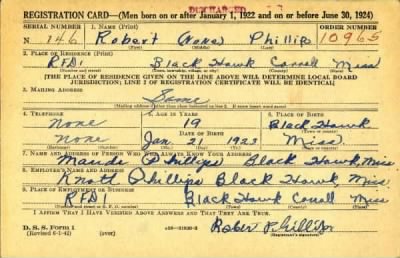 DUTWARTED
REGISTRATION CARD—(Men born on or after January 1, 1922 and on or before June 30, 1924)
SERIAL NUMBER 1. Name (Print) ORDER NUMBER
N 146 Robert None Phillip 10965
(First) (Middle) (Last)
2. Place of Residence (Print)
RFD1 Black Hawk Carroll Miss
[THE PLACE OF RESIDENCE GIVEN ON THE LINE ABOVE WILL DETERMINE LOCAL BOARD
JURISDICTION; LINE 2 OF REGISTRATION CERTIFICATE WILL BE IDENTICAL]
3. Mailing Address
Same
[Mailing address if other than place indicated on line 2. If same insert word same]
4. Telephone 5. Age in Years 6. Place of Birth
None 19 Black Hawk
Date of Birth
None Jan 21 1923 Miss
7. Name and Address of Person Who Will Always Know Your Address
Maude Phillips Black Hawk, Miss
8. Employer's Name and Address
Knott Phillips Black Hawk, Miss
9. Place of Employment or Business
RFD1 Black Hawk Carroll Miss
I Affirm That I Have Verified Above Answers and That They Are True.
D. S. S. Form 1
(Revised 6-1-42) (over) Robert Phillips
(Registrant's signature)